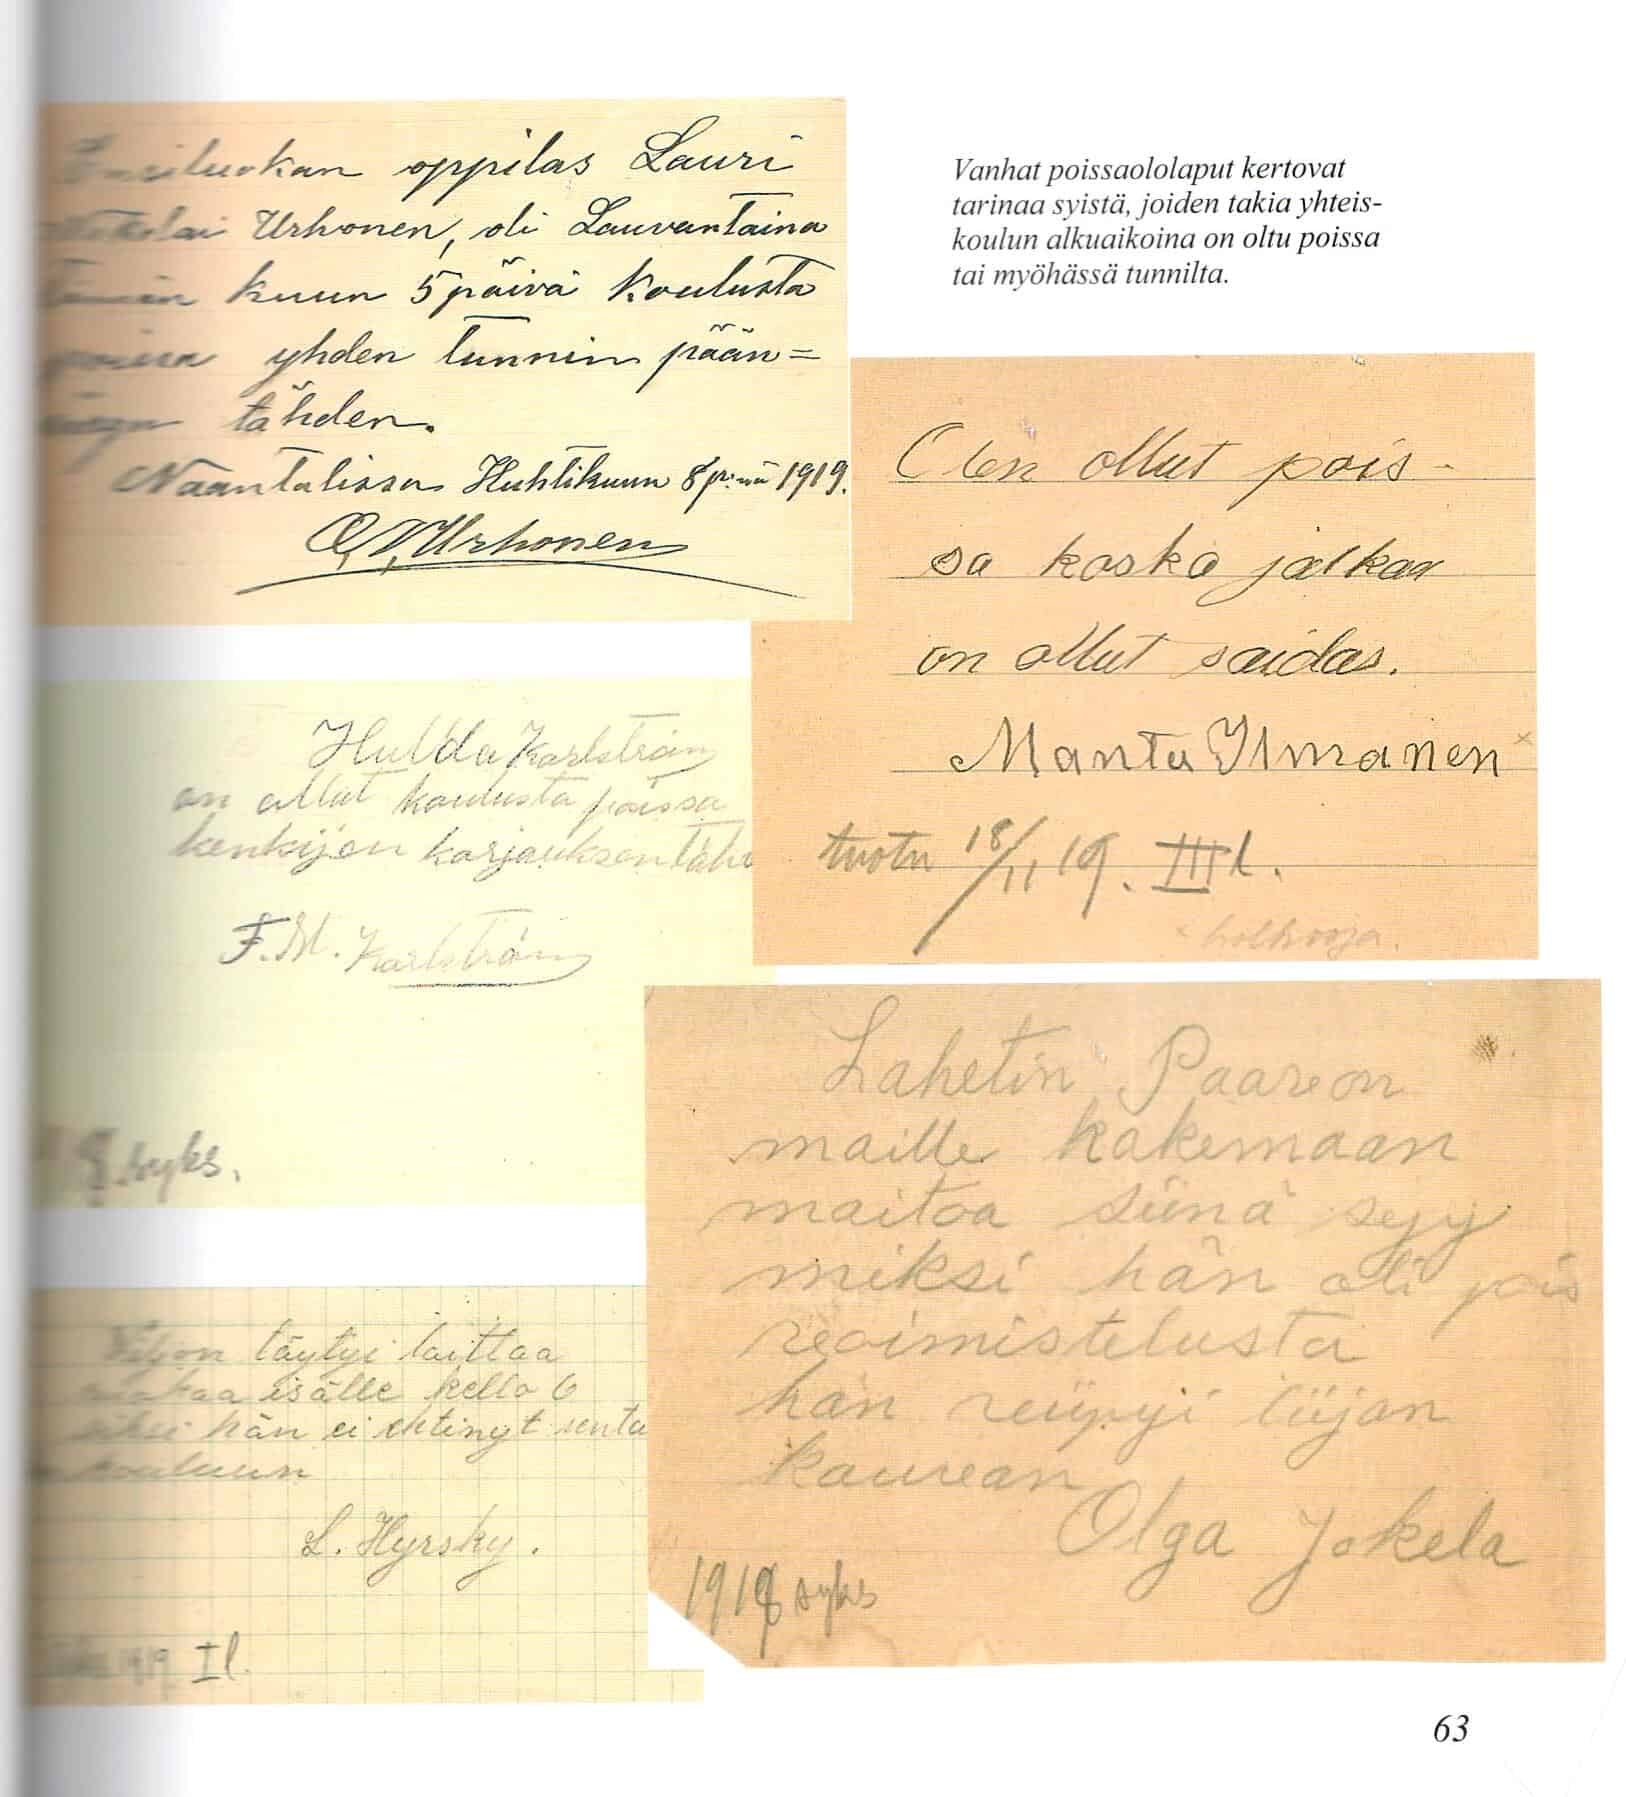 Ensiluokan oppilas Lauri
Nikolai Urhonen, oli Lauvantaina
tämän kuun 5 päivä koulusta
poissa yhden tunnin pään=
säryn tähden.
Naantalissa Huhtikuun 8 p:nä 1919.
O. V. Urhonen
Vanhat poissaololaput kertovat
tarinaa syistä, joiden takia yhteis-
koulun alkuaikoina on oltu poissa
tai myöhässä tunnilta.
Olen ollut pois-
sa koska jalkan
on ollut saidas.
Manta Ilmanen x
tuotu 18/11 19. III l.
x holhooja.
Hulda Karlström
on ollut koulusta poissa
kenkijen korjauksen tähd
F. M. Karlström
syks.
Lahetin Paareon
maille hakemaan
maitoa siinä syy
miksi hän oli pois
voimistelusta
hän viipyi liijan
kauvan
Olga Jokela
1918 syks
täytyi laittaa
ruokaa isälle kello 6
siksi hän ei ehtinyt
kouluun
L. Hyrsky.
1919 I l.
63